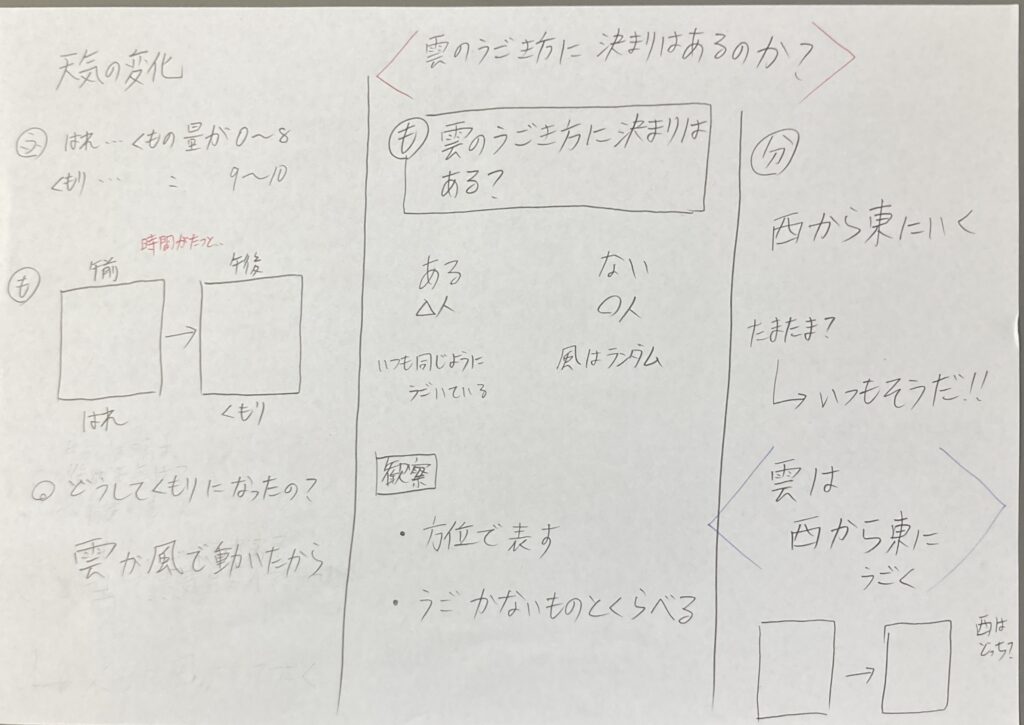 天気の変化
㋒ はれ… くもの量が0〜8
くもり… 〃 9〜10
㋲ 時間がたつと…
午前 → 午後
はれ くもり
Q どうしてくもりになったの?
雲が風で動いたから
〈雲のうごき方に決まりはあるのか?〉
㋲ 雲のうごき方に決まりは
ある?
ある ない
△人 ○人
いつも同じように
うごいている
風はランダム
観察
・方位で表す
・うごかないものとくらべる
分
西から東にいく
たまたま?
↳いつもそうだ!!
〈雲は
西から東に
うごく〉
→
西は
どっち?